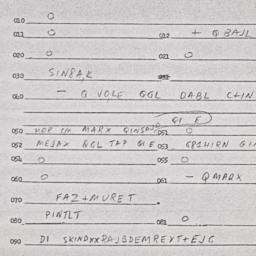 010 O
011 O 012 + Q BAJL
020 O 021 O
030 SIN8A,K
060 — Q VOLE GGL DABL C+IN
QI E
050 HOP IM MARX QINSA 051 O
052 MEJAX QGL TAP QI E 053 GR1HIRN GIN
054 O 055 O
060 O 061 — QMARX
070 FAZ+MURET
080 PINTLT 081 O
090 DI SKINDXXRAJBDEMREXT+EJG